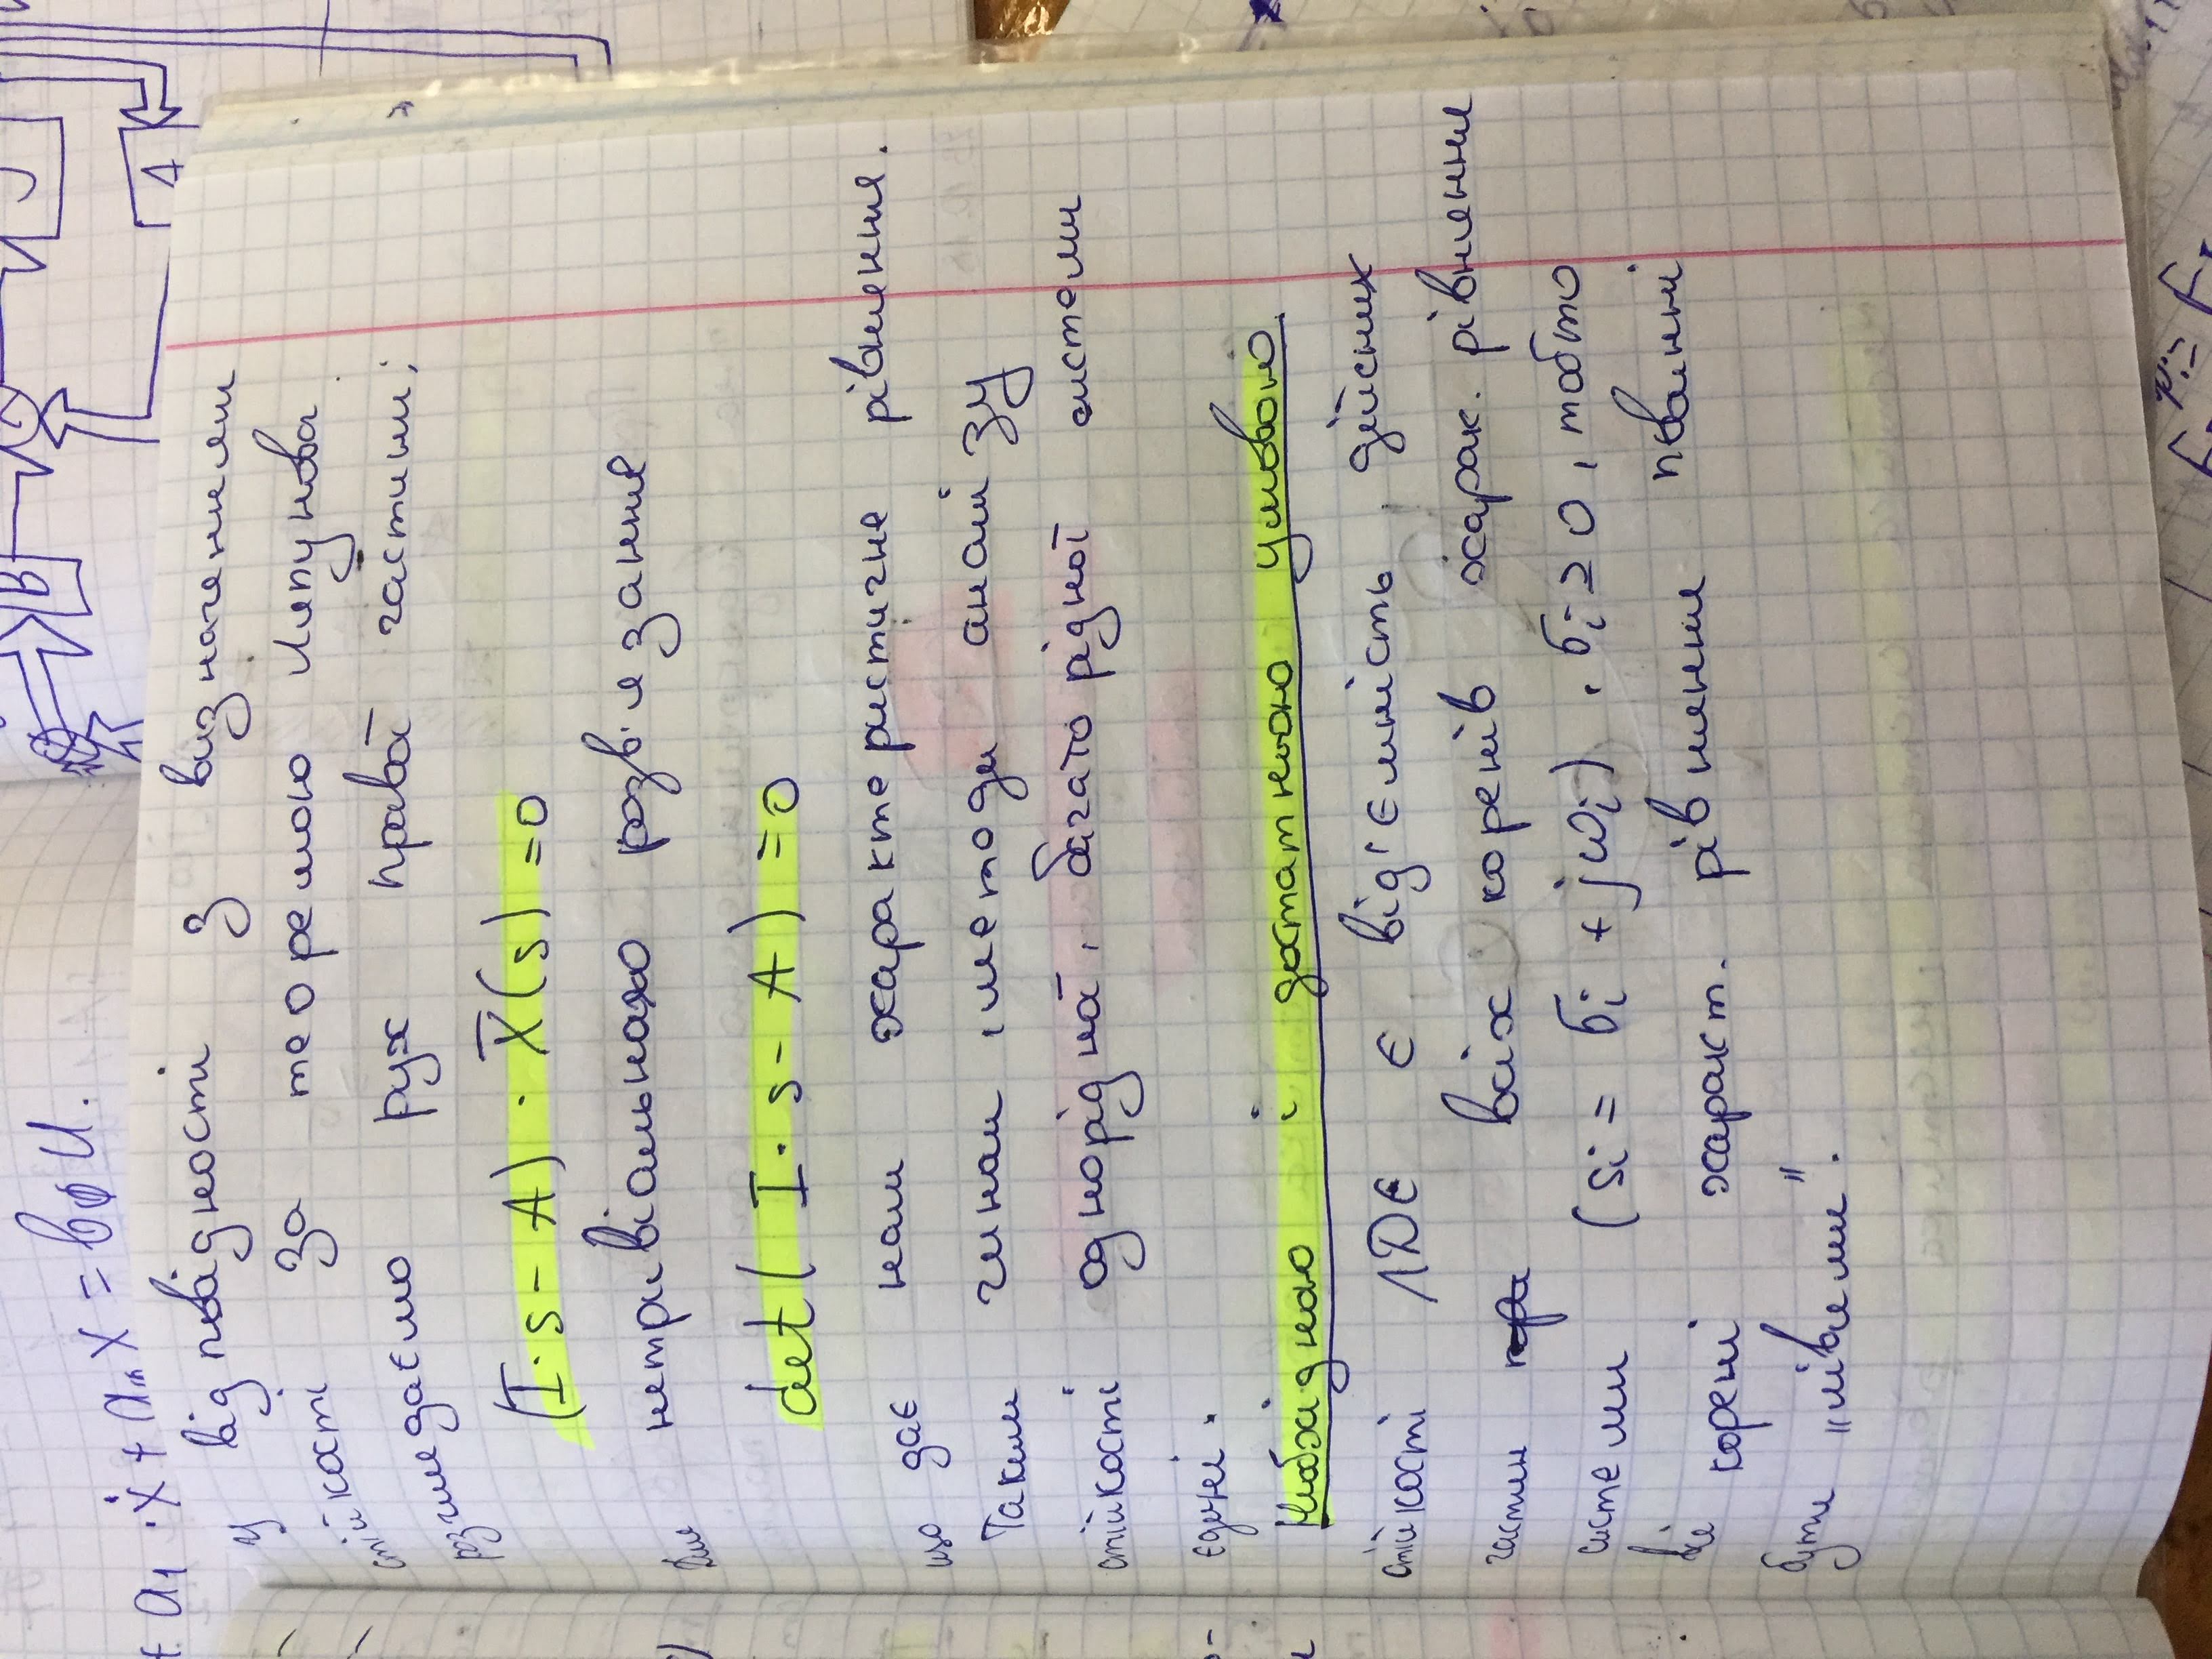 + a₁ · ẋ + aₙ X = b₀ U.
B
A
У відповідності з визначенням
стійкості за теоремою Ляпунова
розгледаємо рух правої частини:
(I·s - A) · X̅(s) = 0
Для нетривіального розв'язання
det( I·s - A) = 0
що дає нам характеристичне рівняння.
Таким чином, методи аналізу
стійкості однорідної, багато рідної системи
єдині.
Необхідною і достатньою умовою
стійкості ЛДЄ є від'ємність дійсних
частин всіх коренів харак. рівняння
системи (si = бi + jωi), бi ≥ 0, тобто
всі корені характ. рівняння повинні
бути „лівими".